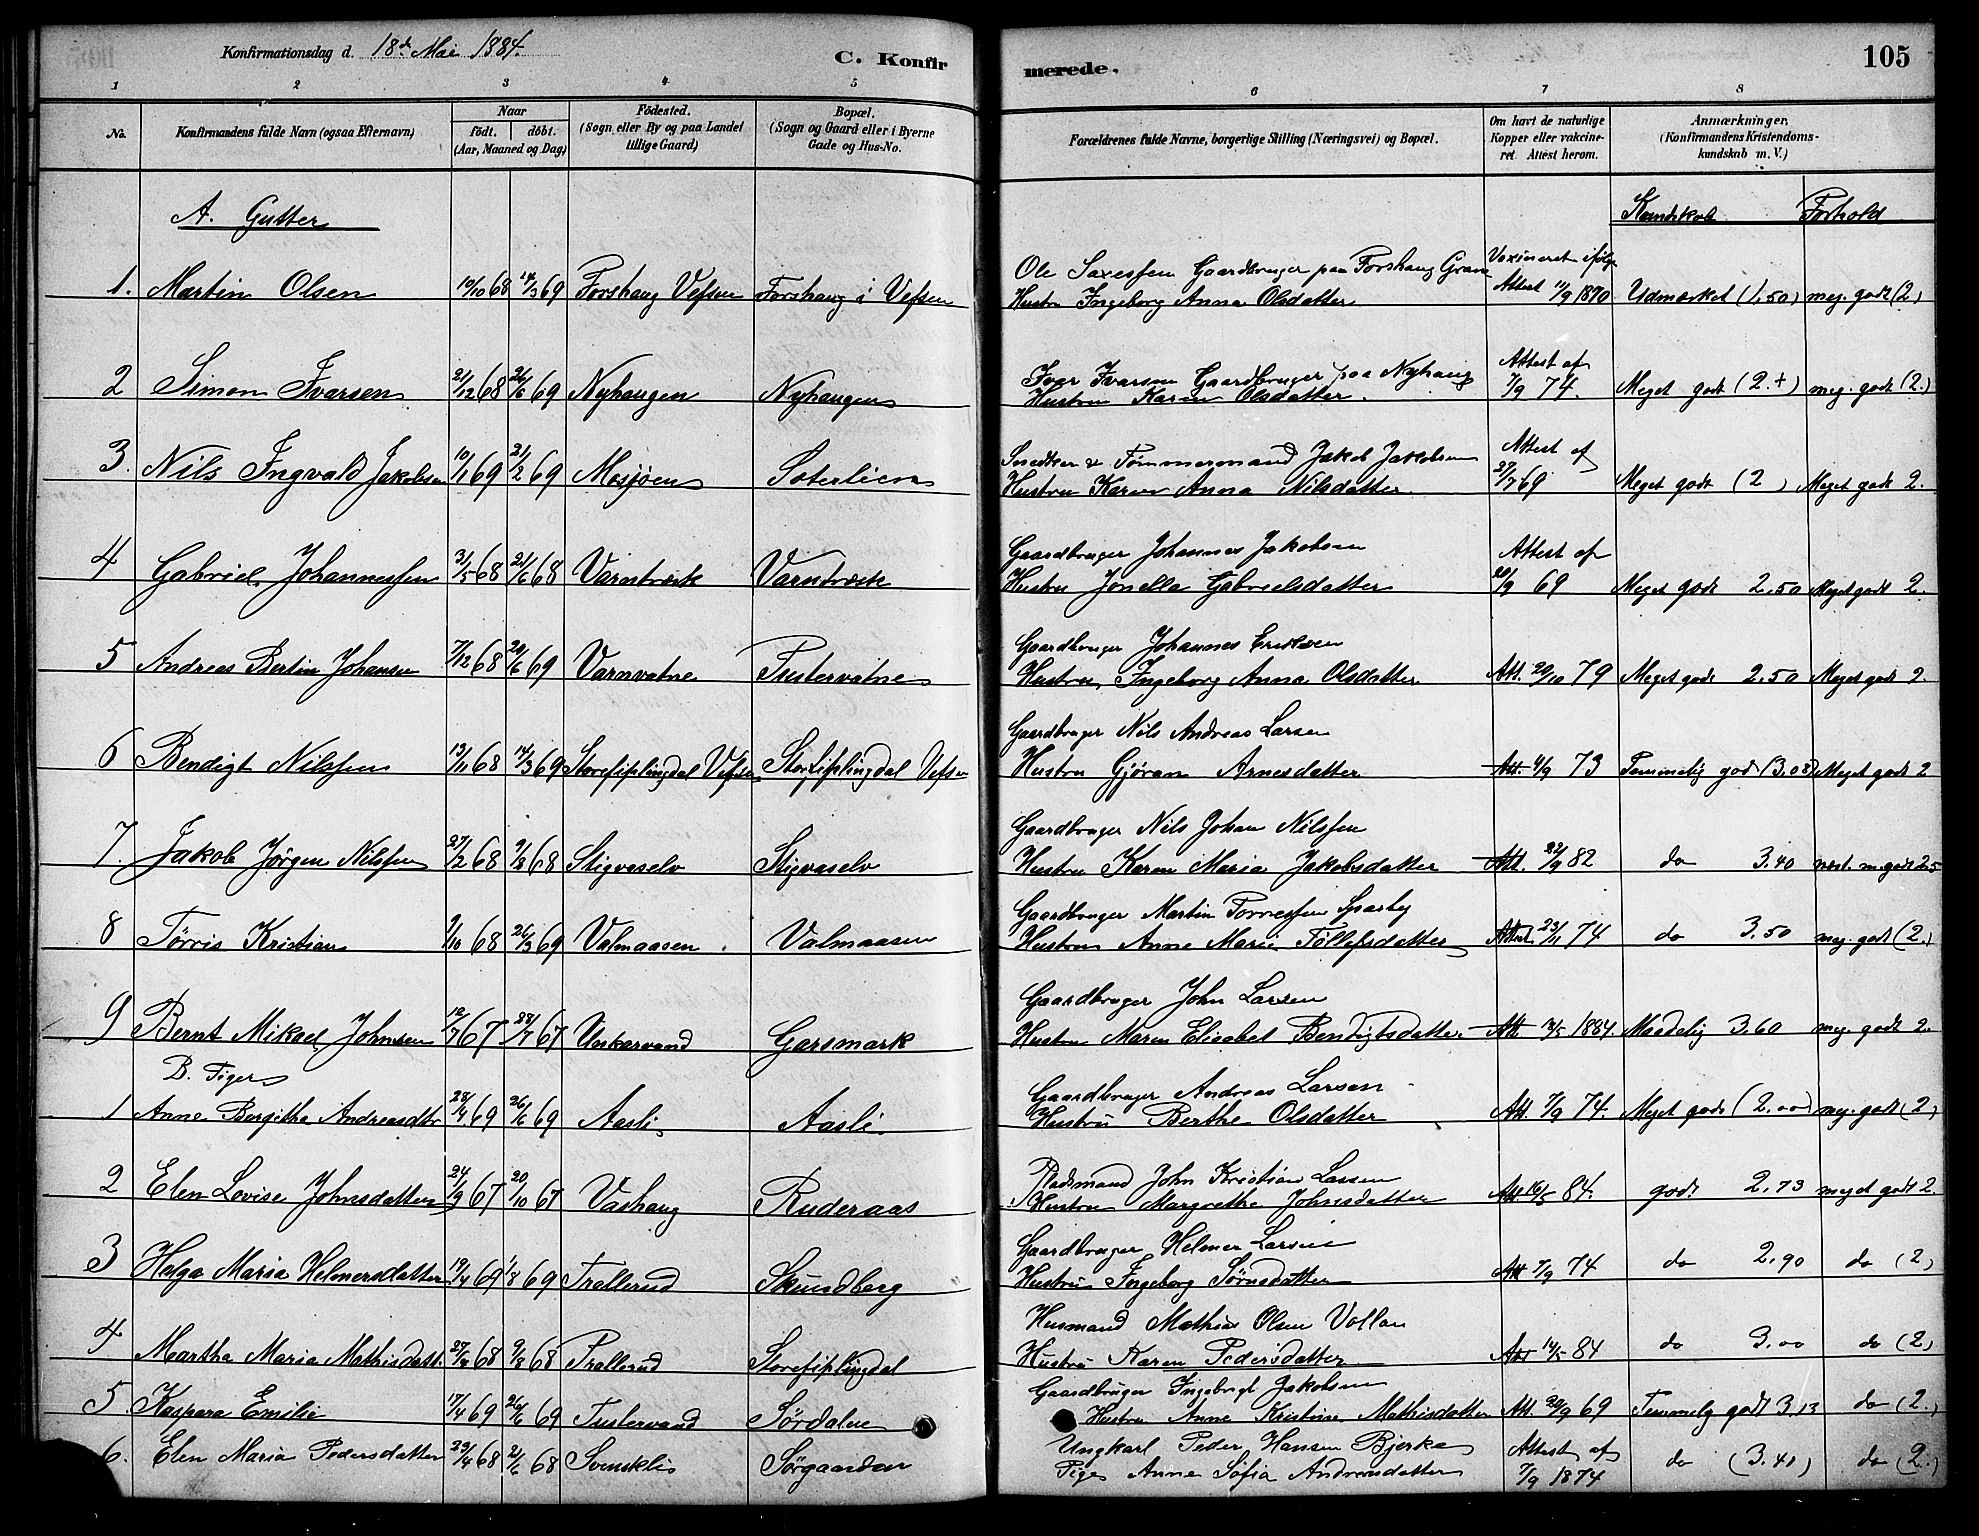 Konfirmationsdag d. 18de Mai 1884.
C. Konfirmerede.
105
1 2 3 4 5 6 7 8
No. Konfirmandens fulde Navn (ogsaa Efternavn) Naar født. døbt. (Aar, Maaned og Dag) Fødested. (Sogn eller By og paa Landet tillige Gaard) Bopæl. (Sogn og Gaard eller i Byerne Gade og Hus-No. Forældrenes fulde Navne, borgerlige Stilling (Næringsvei) og Bopæl. Om havt de naturlige Kopper eller vakcineret. Attest herom. Anmærkninger. (Konfirmandens Kristendomskundskab m. V.)
A. Gutter
Kundskab Forhold
Ole Saxesfen Gaardbruger paa Forshaug Grane Vaxineret ifølge
1. Martin Olsen 10/10 68 14/3 69 Forshaug Vefsen Forshaug i Vefsen Hustru Ingeborg Anna Olsdatter Attest 11/9 1870 Udmærket (1,50) meg. godt (2)
Ivar Ivarsen Gaardbruger paa Nyhaug Attest af
2 Simon Ivarsen 21/12 68 26/6 69 Nyhaugen Nyhaugen Hustru Karen Olsdatter. 7/9 74. Meget godt (2.+) meg. godt (2.)
Snedker & Tømmermand Jakob Jakobsen Attest af
3. Nils Ingvald Jakobsen 10/1 69 21/2 69 Mosjøen Soterlien Hustru Karen Anna Nilsdatter. 27/7 69 Meget godt (2) Meget godt 2.
Gaardbruger Johannes Jakobsen Attest af
4 Gabriel Johannessen 31/5 68 21/6 68 Varntræsk Varntræsk Hustru Jonella Gabrielsdatter 20/9 69 Meget godt 2.50 Meget godt 2.
Gaardbruger Johannes Eriksen
5 Andreas Bertin Johansen 7/12 68 20/6 69 Varnvatne Tustervatne Hustru Ingeborg Anna Olsdatter Att. 20/10 79 Meget godt 2.50 Meget godt 2.
Gaardbruger Nils Andreas Larsen
6 Bendigt Nilssen 13/11 68 14/3 69 Storefiplingdal Vefsen Storfiplingdal Vefsen Hustru Gjøran Arnesdatter Att. 4/9 73 Temmelig god (3.08) Meget godt 2
Gaardbruger Nils Johan Nilssen
7. Jakob Jørgen Nilssen 27/2 68 9/8 68 Stigvaselv Stigvaselv Hustru Karen Maria Jakobsdatter Att. 22/9 82 do 3.40 næst. m. godt 2.5
Gaardbruger Martin Torressen Sparby
8 Tørris Kristian 9/10 68 26/3 69 Valmaasen Valmaasen Hustru Anne Marie Tøllefsdatter Attest. 23/11 74 do 3.50 meg. godt (2.)
Gaardbruger John Larsen
9 Bernt Mikael Johnsen 12/7 67 28/7 67 Unkervand Garsmark Hustru Maren Elisabet Bendigtsdatter Att 12/5 1884. Maadelig 3.60 meg. godt 2.
B. Piger
Gaardbruger Andreas Larsen
1 Anne Bergitha Andreasdtr 28/4 69 26/6 69 Aasli Aasli Hustru Berthe Olsdatter Att 7/9 74. Meget godt (2.00) meg. godt (2)
Pladsmand John Kristian Larsen
2 Elen Lovise Johnsdatter 24/9 67 20/10 67 Vashaug Ruderaas Hustru Margrethe Johnsdatter Att 16/5 84. godt 2.73 meget godt 2.
Gaardbruger Helmer Larsen
3 Helga Maria Helmersdatter 19/4 69 1/8 69 Trallerud Skundberg Hustru Ingeborg Sørnsdatter Att 7/9 74 do 2.90 do (2)
Husmand Mathias Olsen Vollan
4 Martha Maria Mathisdatt. 27/4 68 9/8 68 Trallerud Storefiplingdal Hustru Karen Pedersdatter Att 14/5 84 do 3.00 do (2)
Gaardbruger Ingebrigt Jakobsen
5. Kaspara Emilie 17/4 69 26/6 69 Tustervand Sørdalen Hustru Anne Kristine Mathisdatter Att. 20/9 69 Temmelig godt 3.13 do (2.)
Ungkarl Peder Hansen Bjerke Attest af
6. Elen Maria Pedersdatter 29/4 68 21/6 68 Svenskli Sørgaarden Pige Anne Sofia Andreasdatter 7/9 1874 do (3.40) do (2.)